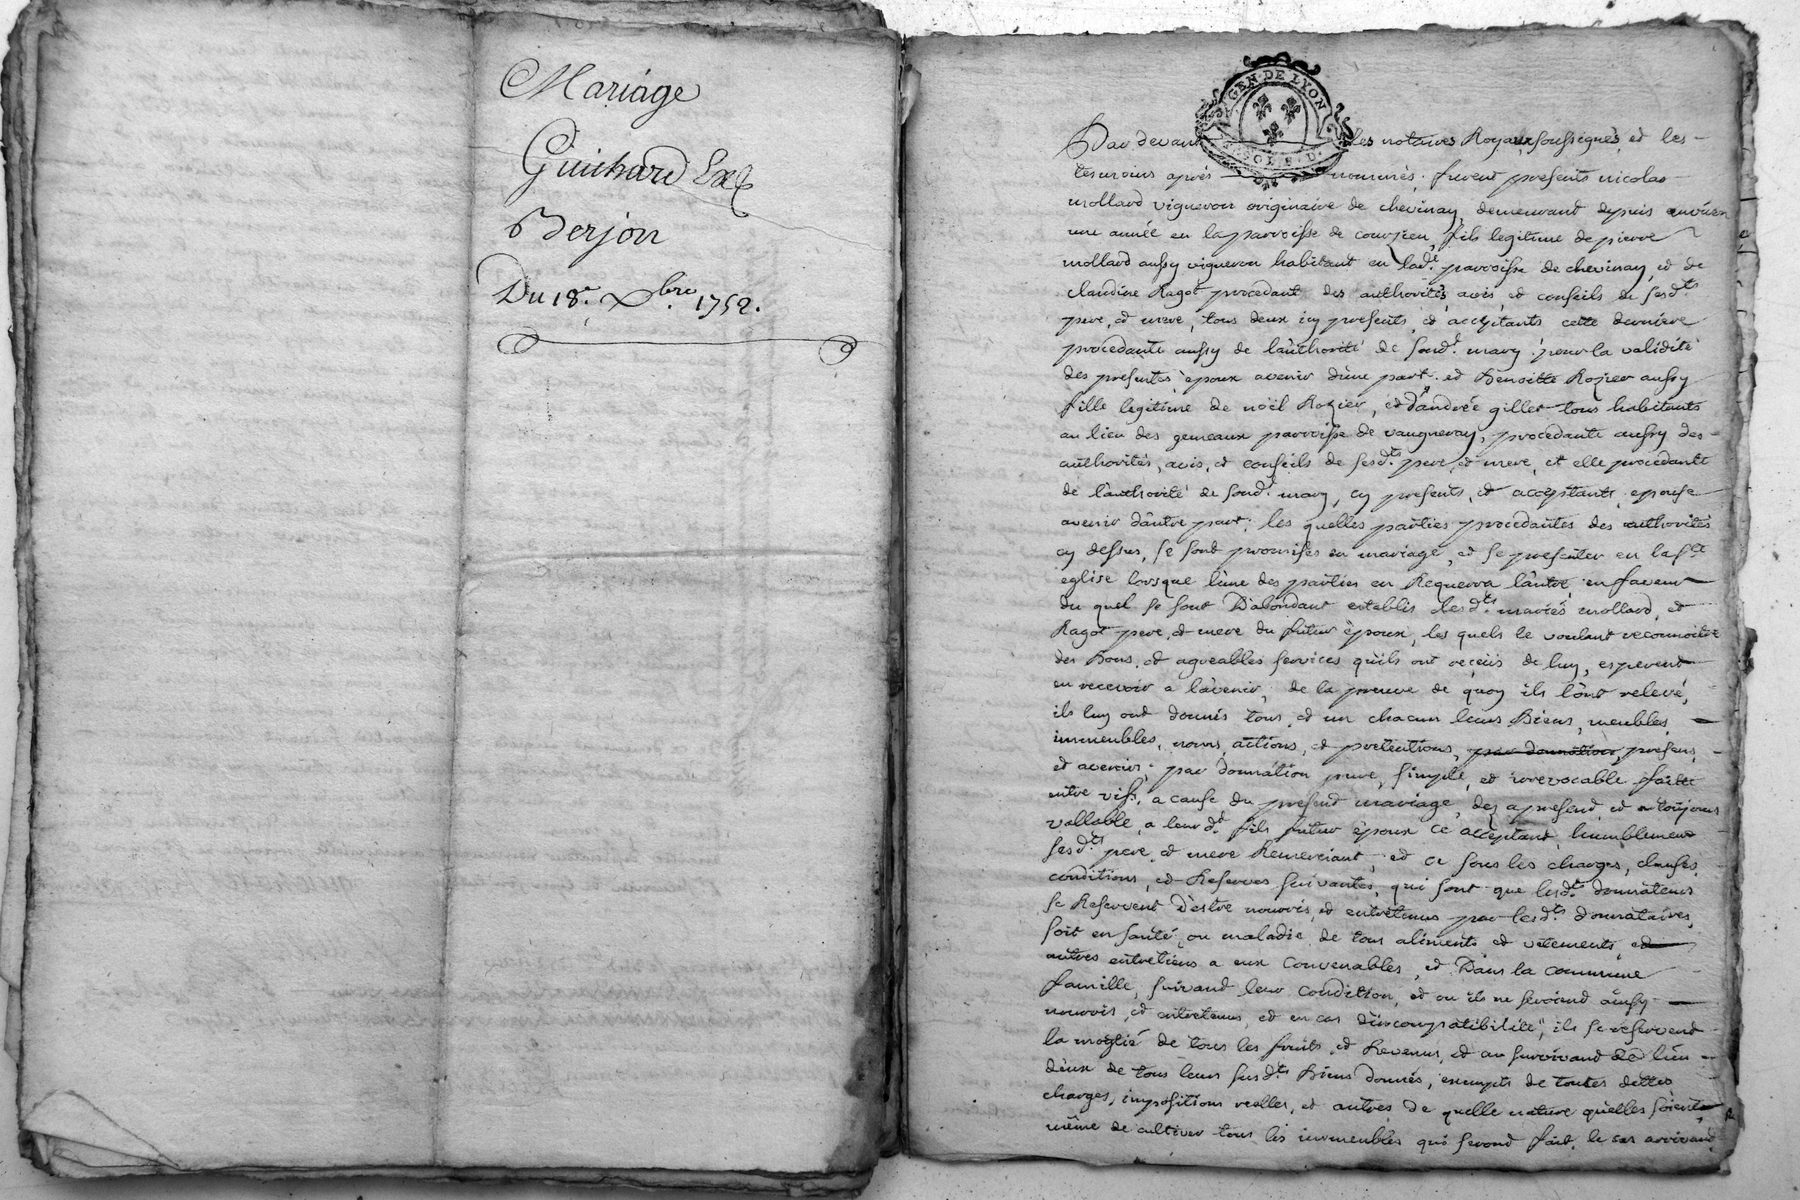 Mariage
Guichard Et
Berjon
Du 18.e Xbre 1752.
GEN. DE LYON
SOL. S. D.
Par devant les notaires Royaux soussignés, et les
temoins après nommés, furent presents nicolas
mollard vigneron originaire de chevinay, demeurant depuis environ
une année en la parroisse de courzieu, fils legitime de pierre
mollard aussy vigneron habitant en lad.e parroisse de chevinay, et de
claudine Ragot procedant des authorités, avis, et conseils de sesd.ts
pere, et mere, tous deux icy presents, et acceptants cette derniere
procedante aussy de l'authorité de sond.t mary pour la validité
des presentes époux avenir d'une part. et Benoitte Rozier aussy
fille legitime de noël Rozier, et d'andrée gillet tous habitants
au lieu des gemeaux parroisse de vaugneray, procedante aussy des
authorités, avis, et conseils de sesd.ts pere, et mere, et elle procedante
de l'authorité de sond.t mary, cy presents, et acceptants, epouse
avenir d'autre part; les quelles parties procedantes des authorités
cy dessus, se sont promises en mariage, et se presenter en la s.te
eglise lorsque l'une des parties en Requerra l'autre, en faveur
du quel se sont D'abondant establis lesd.ts mariés mollard, et
Ragot pere, et mere du futur époux, les quels le voulant reconnoitre
des Bons, et agreables services qu'ils ont receüs de luy, esperent
en recevoir a l'avenir, de la preuve de quoy ils l'ont relevé,
ils luy ont donnés tous, et un chacun leurs Biens, meubles,
immeubles, noms, actions, et pretentions, par donnation, presens,
et avenir; par donnation pure, simple, et irrevocable faitte
entre vifs, a cause du present mariage, dez apresent, et a toujours
vallable, a leurd.t fils futur époux ce acceptant, humblement
sesd.ts pere, et mere Remerciant, et ce sous les charges, clauses,
conditions, et Reserves suivantes, qui sont que lesd.ts donnateurs
se Reservent D'estre nourris, et entretenus par lesd.ts donnataires,
soit en santé, ou maladie de tous aliments et vétements, et
autres entretiens a eux convenables, et Dans la commune
famille, suivant leur condition, et ou ils ne seroient ainsy
nourris, et entretenus, et en cas d'incompatibilité, ils se reservent
la moitié de tous les fruits, et Revenus, et au survivant de l'un
d'eux de tous leurs susd.ts Biens donnés, exempts de toutes dettes
charges, impositions reelles, et autres de quelle nature qu'elles soient,
même de cultiver tous les immeubles qui seront fait, le cas arrivant